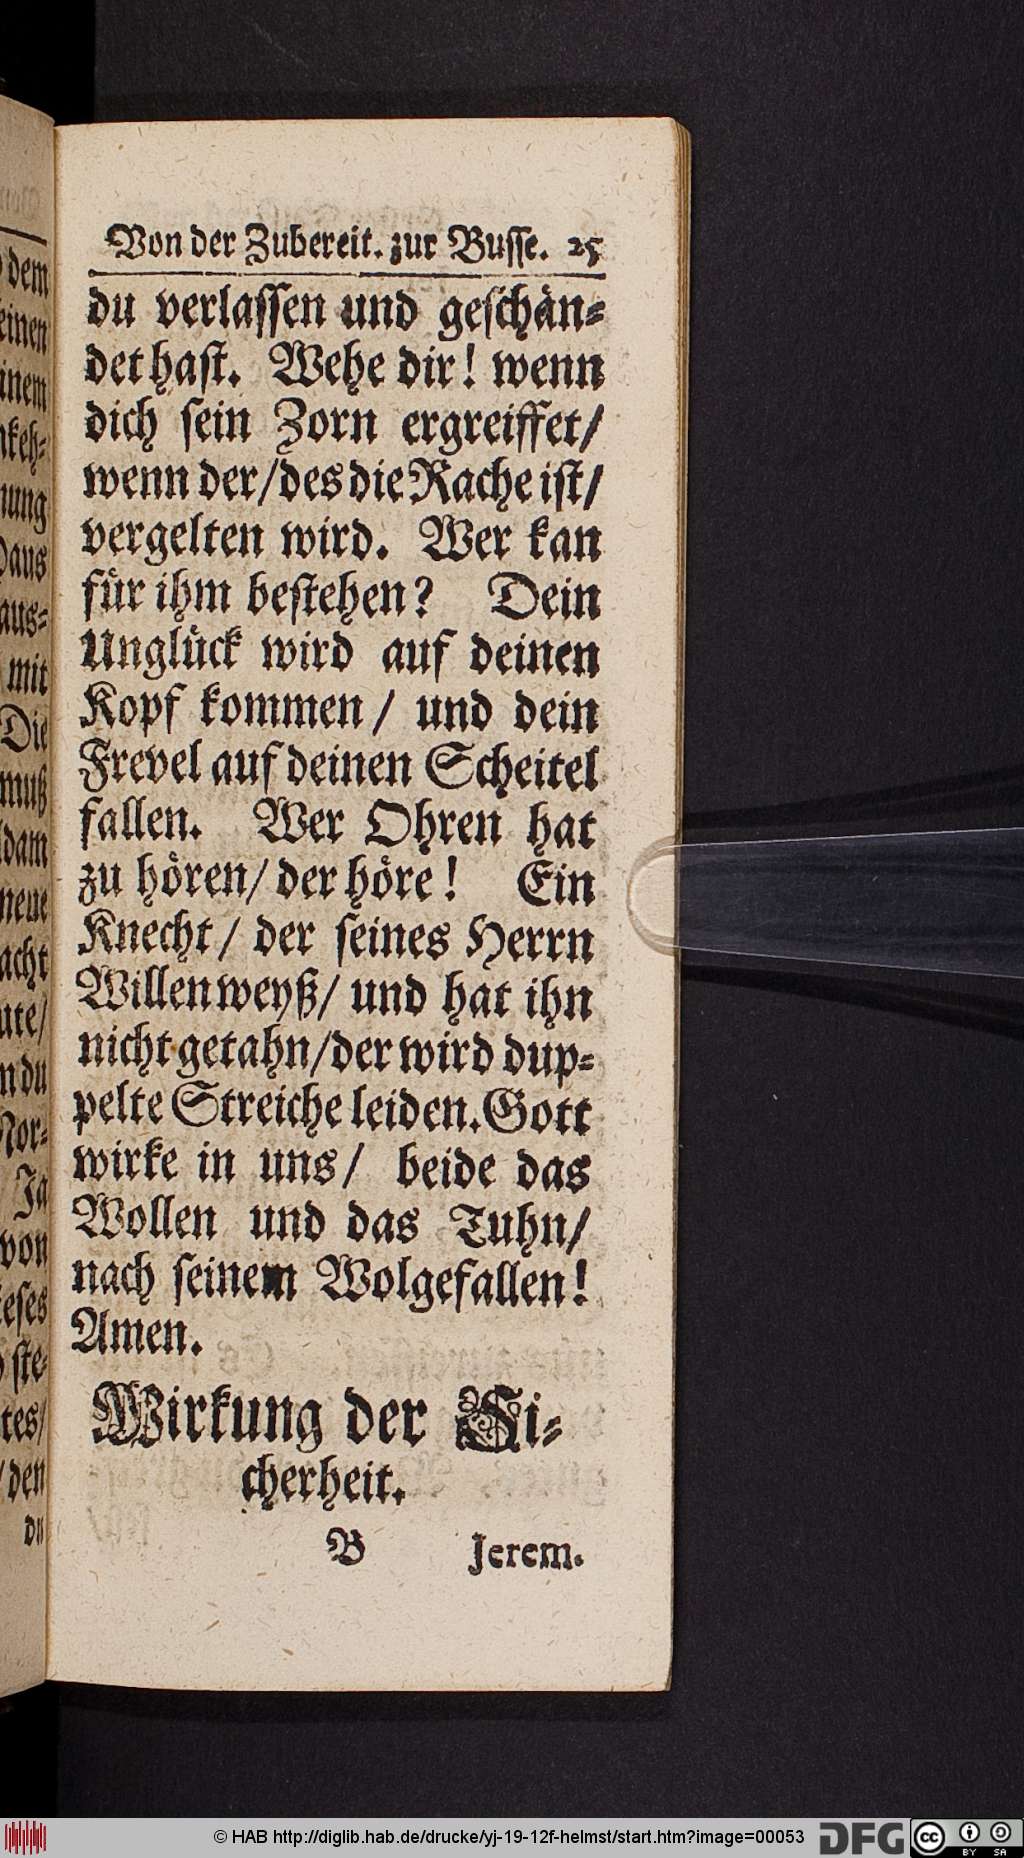 dem
einen
inem
keh⸗
nung
daus
aus⸗
mit
Die
muß
dam
neue
acht
ute/
n du
Nor⸗
Ja
von
eses
ste⸗
tes/
den
du
Von der Zubereit. zur Busse. 25
du verlassen und geschän⸗
det hast. Wehe dir! wenn
dich sein Zorn ergreiffet/
wenn der/des die Rache ist/
vergelten wird. Wer kan
für ihm bestehen? Dein
Unglück wird auf deinen
Kopf kommen/ und dein
Frevel auf deinen Scheitel
fallen. Wer Ohren hat
zu hören/ der höre! Ein
Knecht/ der seines Herrn
Willen weyß/ und hat ihn
nicht getahn/der wird dup⸗
pelte Streiche leiden. Gott
wirke in uns/ beide das
Wollen und das Tuhn/
nach seinem Wolgefallen!
Amen.
Wirkung der Si⸗
cherheit.
B Jerem.
© HAB http://diglib.hab.de/drucke/yj-19-12f-helmst/start.htm?image=00053 DFG cc BY SA